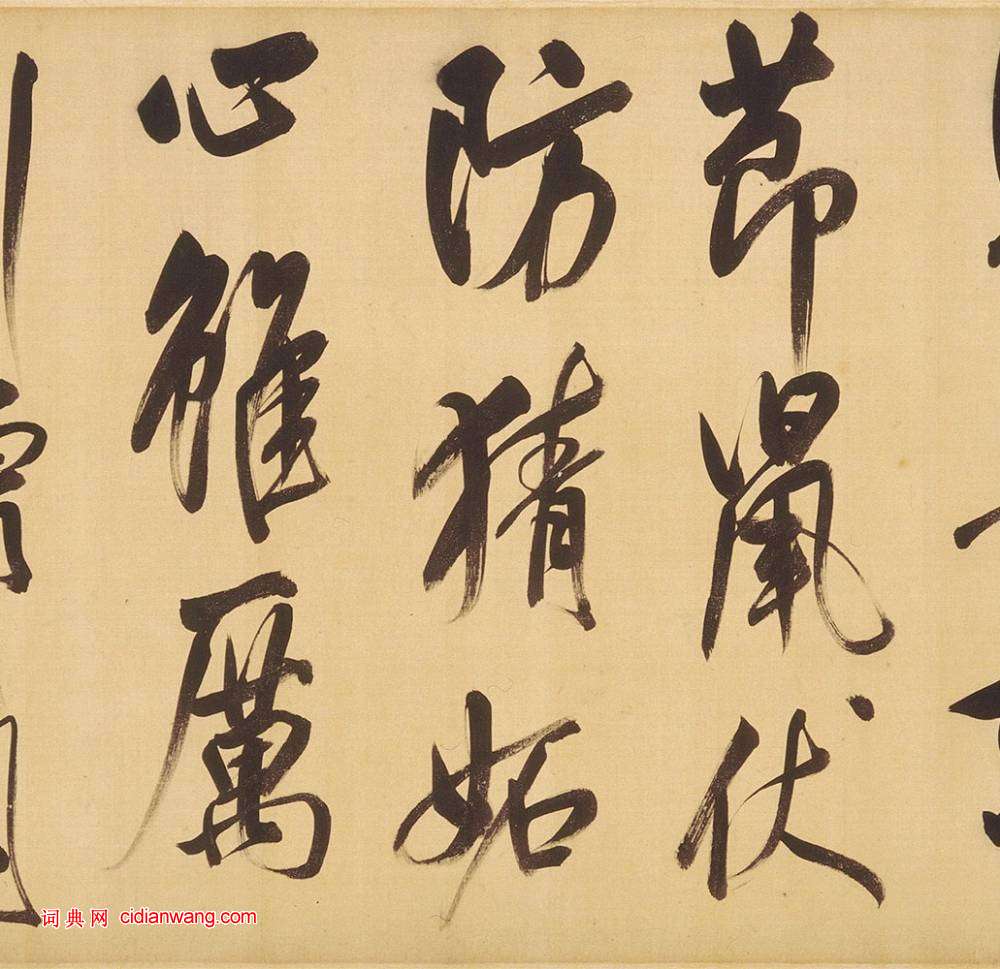 節鼠伏
防猜妬
心雖厲
词典网 cidianwang.com